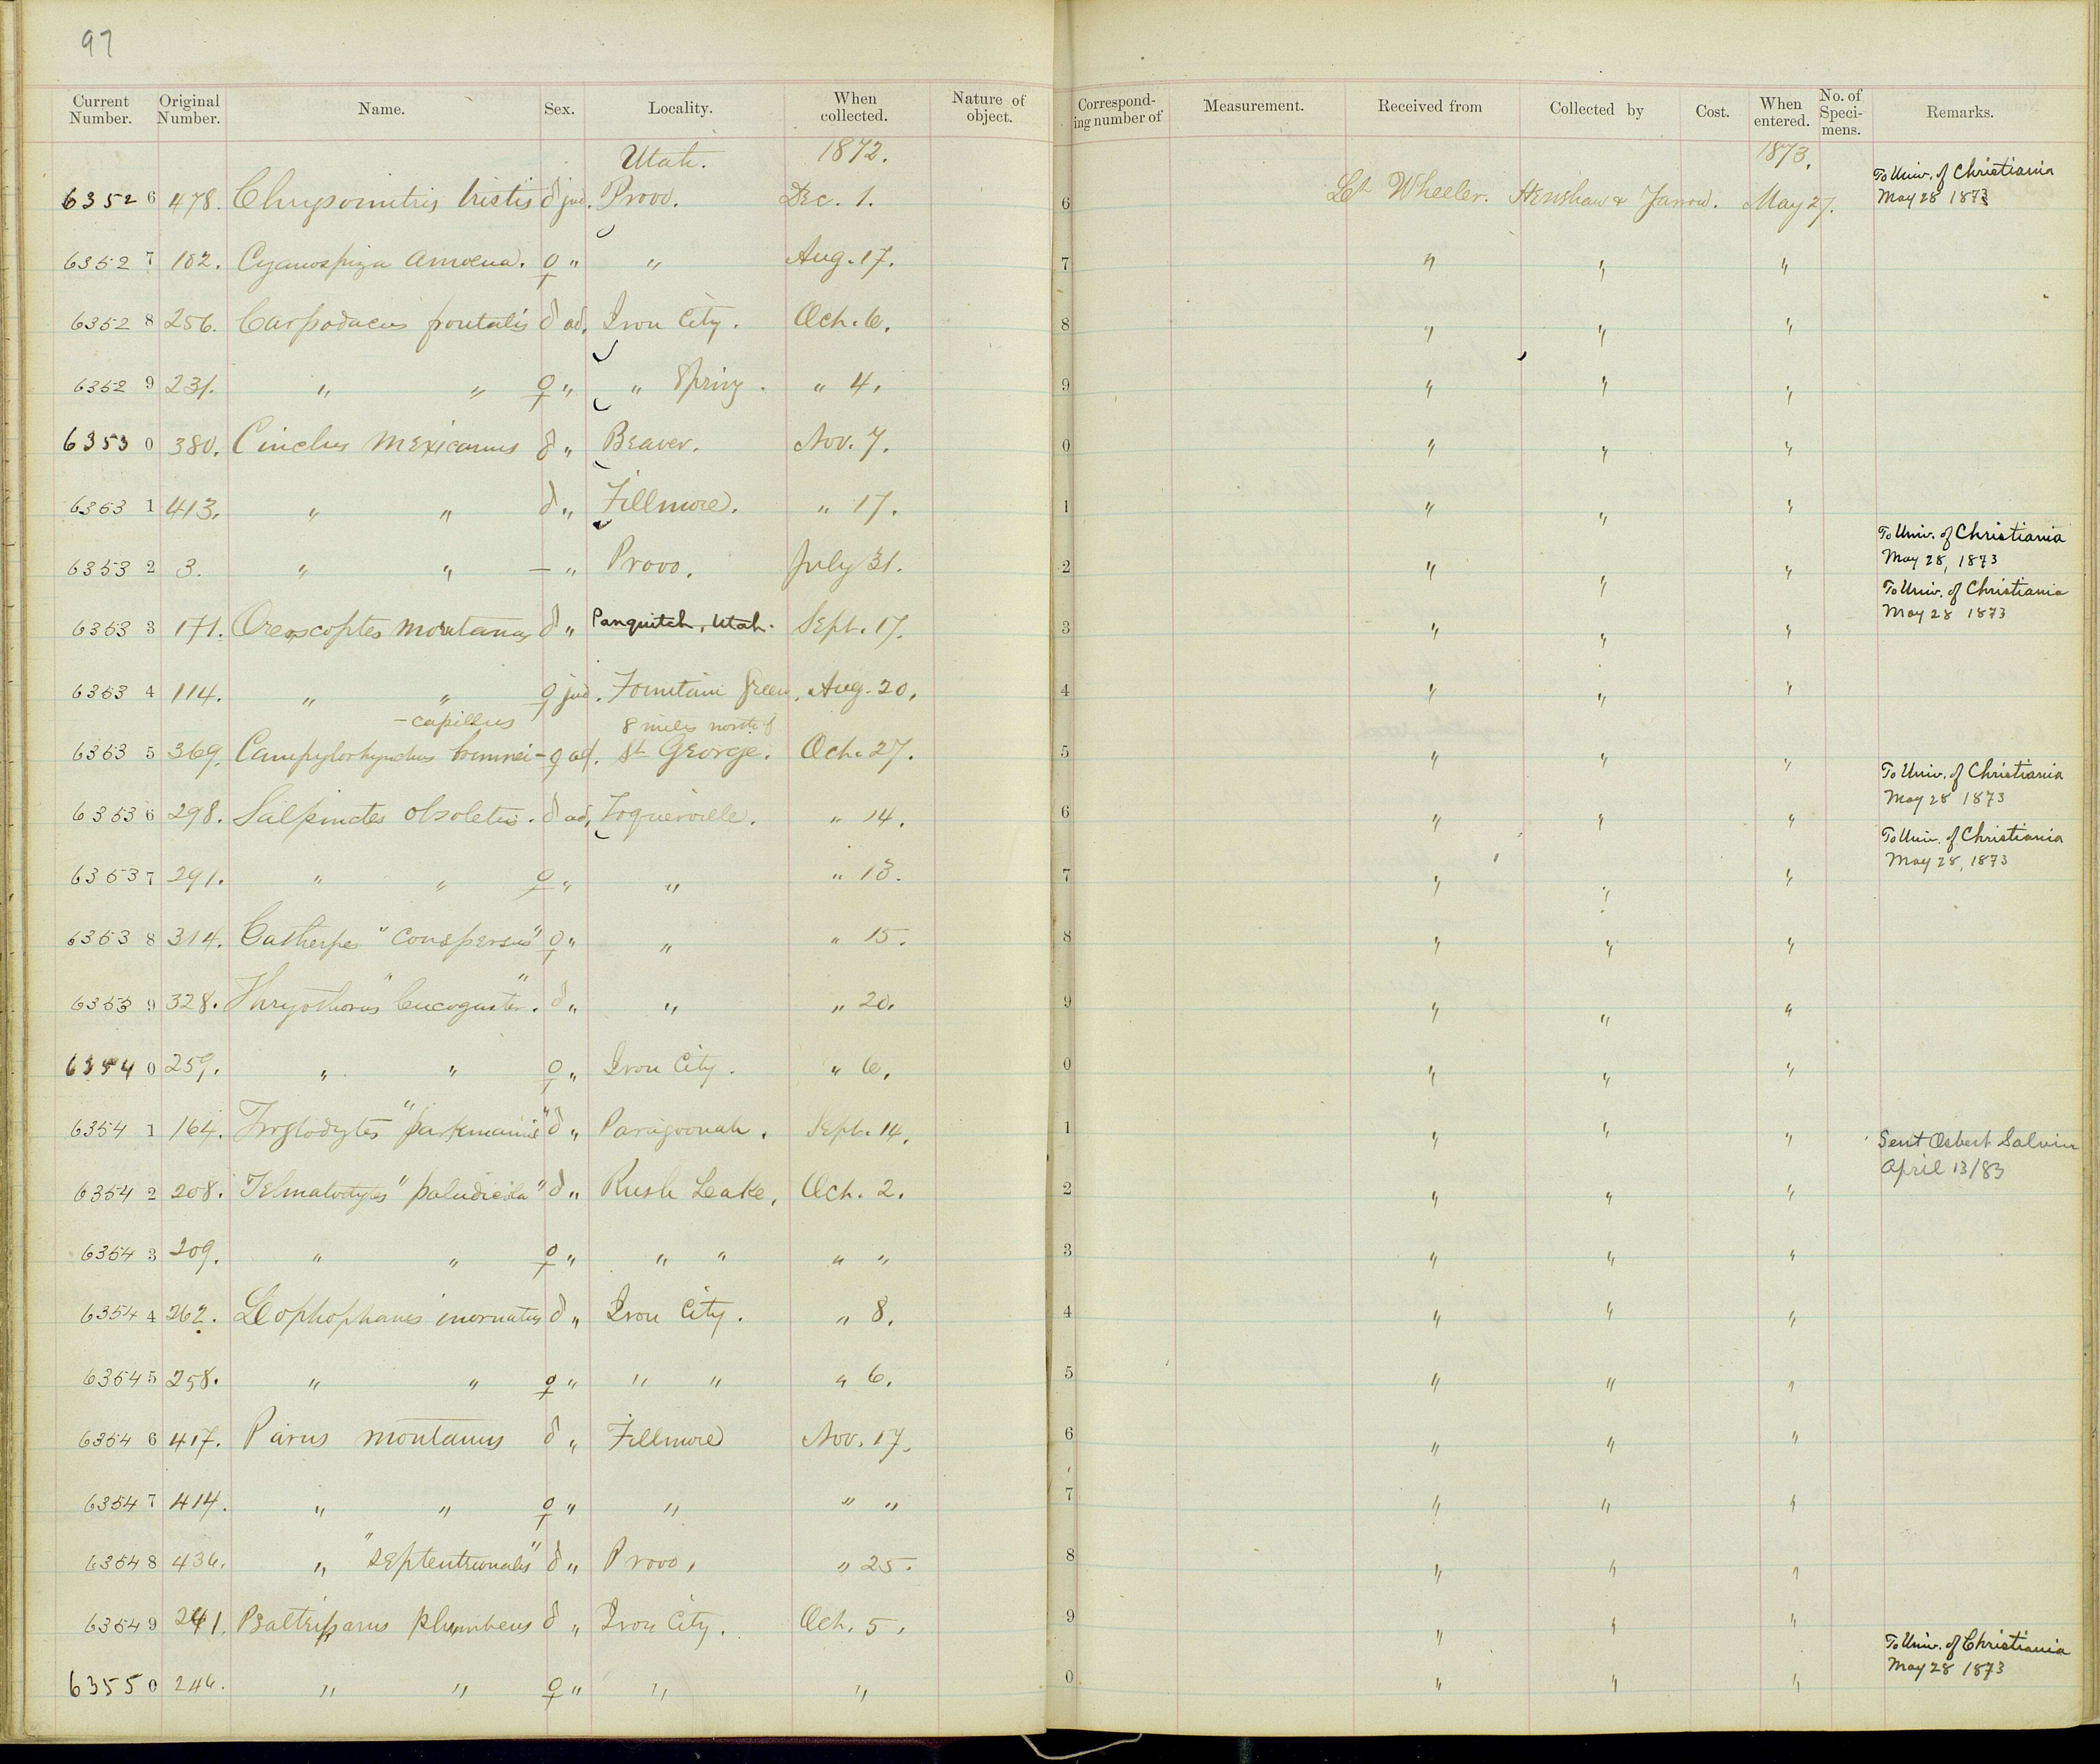 97
Current Number. Original Number. Name. Sex. Locality. When collected. Nature of object. Corresponding number of Measurement. Received from Collected by Cost. When entered. No. of Specimens. Remarks.
Utah. 1872. 1873.
63526 478. Chrysomitris tristis ♂ juv. Provo. Dec. 1. 6 Lt Wheeler. Henshaw & Yarrow. May 27. To Univ. of Christiania May 28 1873
63527 182. Cyanospiza amoena. ♀ " " Aug. 17. 7 " " "
63528 256. Carpodacus frontalis ♂ ad. Iron City. Oct. 6. 8 " " "
63529 231. " " ♀ " " Spring. " 4. 9 " " "
63530 380. Cinclus mexicanus ♂ " Beaver. Nov. 7. 0 " " "
63531 413. " " ♂ " Fillmore. " 17. 1 " " "
63532 3. " " — " Provo. July 31. 2 " " " To Univ. of Christiania May 28, 1873
63533 171. Oreoscoptes montanus ♂ " Panquitch, Utah. Sept. 17. 3 " " " To Univ. of Christiania May 28 1873
63534 114. " " ♀ juv. Fountain Green. Aug. 20. 4 " " "
-capillus 8 miles north of
63535 369. Campylorhynchus brunnei- ♀ ad. St George. Oct. 27. 5 " " "
63536 298. Salpinctes obsoletus. ♂ ad. Toquerville. " 14. 6 " " " To Univ. of Christiania May 28 1873
63537 291. " " ♀ " " " 13. 7 " " " To Univ. of Christiania May 28, 1873
63538 314. Catherpes "conspersus" ♀ " " " 15. 8 " " "
63539 328. Thryothorus "leucogaster". ♂ " " " 20. 9 " " "
63540 259. " " ♀ " Iron City. " 6. 0 " " "
63541 164. Troglodytes "parkmanii" ♂ " Paragoonah. Sept. 14. 1 " " " Sent Osbert Salvin April 13/83
63542 208. Telmatodytes "paludicola" ♂ " Rush Leake. Oct. 2. 2 " " "
63543 209. " " ♀ " " " " " 3 " " "
63544 262. Lophophanes inornatus ♂ " Iron City. " 8. 4 " " "
63545 258. " " ♀ " " " " 6. 5 " " "
63546 417. Parus montanus ♂ " Fillmore Nov. 17. 6 " " "
63547 414. " " ♀ " " " " 7 " " "
63548 436. " "septentrionalis" ♂ " Provo, " 25. 8 " " "
63549 241. Psaltriparus plumbeus ♂ " Iron City. Oct. 5. 9 " " "
63550 246. " " ♀ " " " 0 " " " To Univ. of Christiania May 28 1873